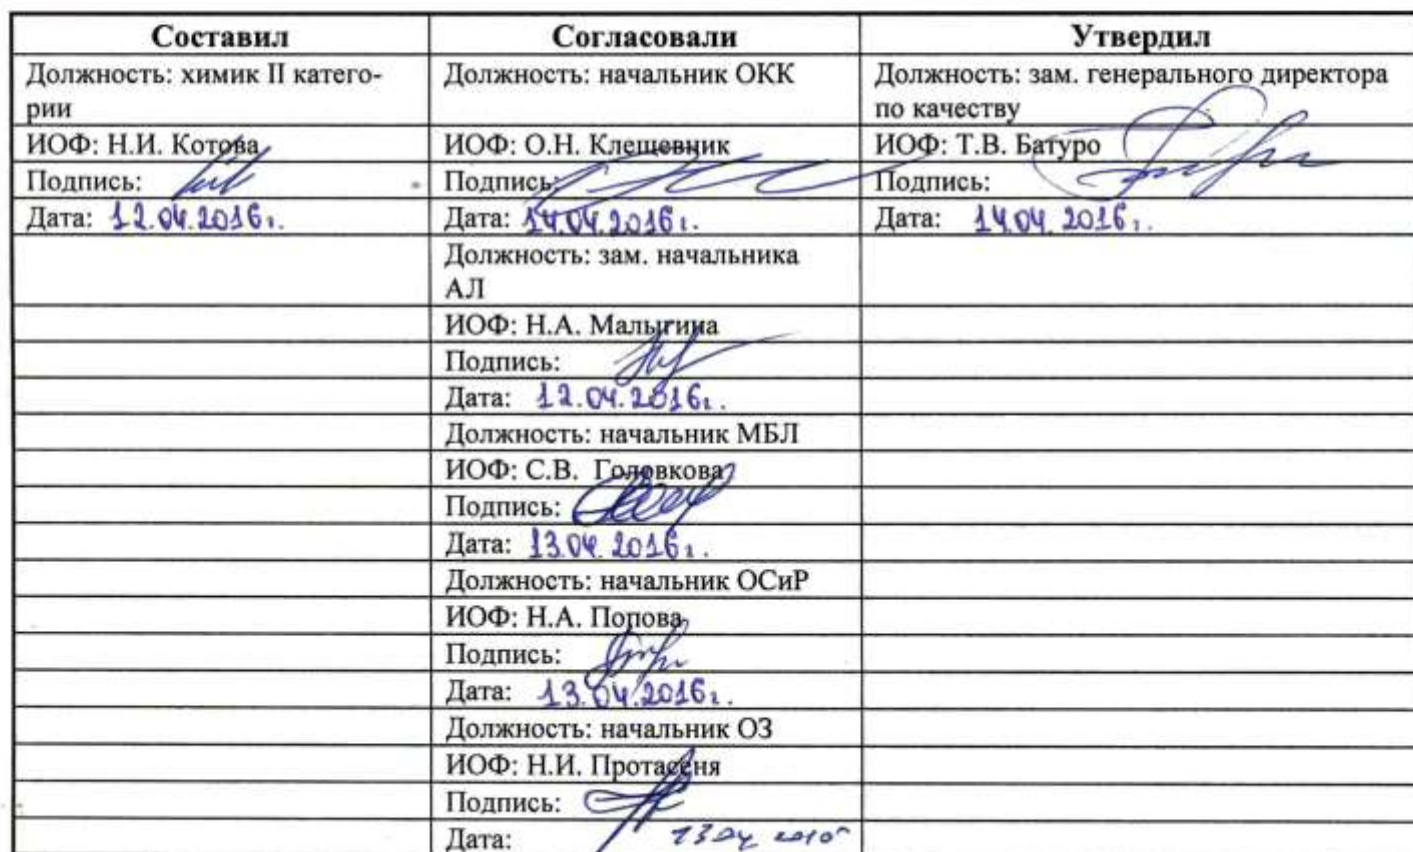 Составил Согласовали Утвердил
Должность: химик II катего-
рии
Должность: начальник ОКК
Должность: зам. генерального директора
по качеству
ИОФ: Н.И. Котова
ИОФ: О.Н. Клещевник
ИОФ: Т.В. Батуро
Подпись:
Подпись:
Подпись:
Дата: 12.04.2016г.
Дата: 14.04.2016г.
Дата: 14.04.2016г.
Должность: зам. начальника
АЛ
ИОФ: Н.А. Малыгина
Подпись:
Дата: 12.04.2016г.
Должность: начальник МБЛ
ИОФ: С.В. Головкова
Подпись:
Дата: 13.04.2016г.
Должность: начальник ОСиР
ИОФ: Н.А. Попова
Подпись:
Дата: 13.04.2016г.
Должность: начальник ОЗ
ИОФ: Н.И. Протасеня
Подпись:
Дата: 13 04